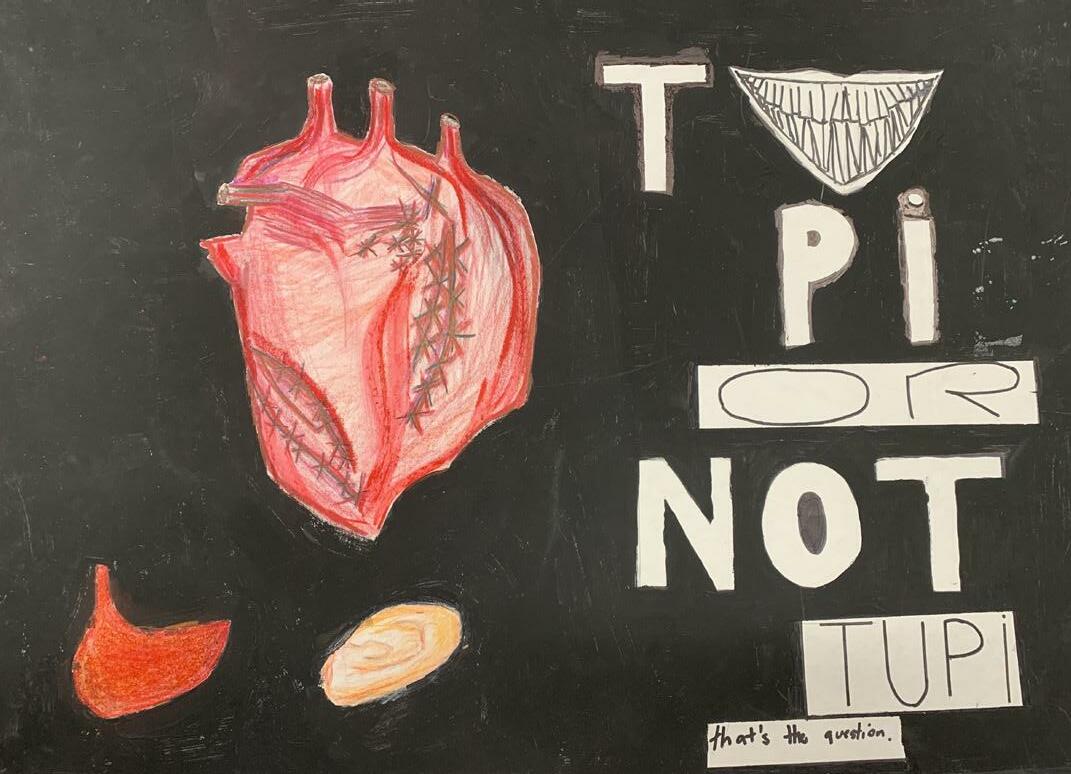 T
Pi
OR
NOT
TUPi
that's the question.